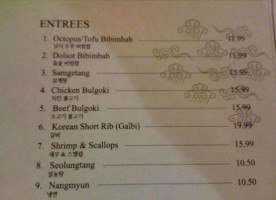 ENTREES
1. Octopus/Tofu Bibimbab 12.99
낙지 두부 비빔밥
2. Dolsot Bibimbab 15.99
돌솥 비빔밥
3. Samgetang 15.99
삼계탕
4. Chicken Bulgoki 15.99
치킨 불고기
5. Beef Bulgoki 15.99
소고기 불고기
6. Korean Short Rib (Galbi) 19.99
갈비
7. Shrimp & Scallops 15.99
새우 & 스캘럽
8. Seolungtang 10.50
설농탕
9. Nangmyun 10.50
냉면